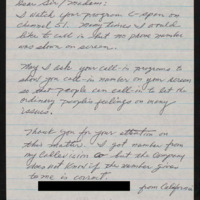 Dear Sir/Madam:
I watch your program C-Span on
channel 51. Many times I would
like to call in but no phone number
was shown on screen.
May I ask your call-in programs to
show you call-in number on your screen
so that people can call in to let the
ordinary people's feelings on many
issues.
Thank you for your attention on
this matter. I got number from
my Cablevision Co but the Company
does not know if the number given
to me is correct.
from California